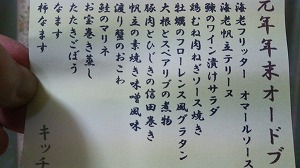 元年年末オードブ
海老フリッター オマールソース
海老帆立テリーヌ
鰊のワイン漬けサラダ
鶏むね肉ねぎソース焼き
牡蠣のフローレンス風グラタン
大根とスペアリブの煮物
豚肉とひじきの信田巻き
渡り蟹のおこわ
帆立の素焼き味噌風味
鮭のマリネ
お宝巻き蒸し
たたきごぼう
なます
柿なます
キッチ